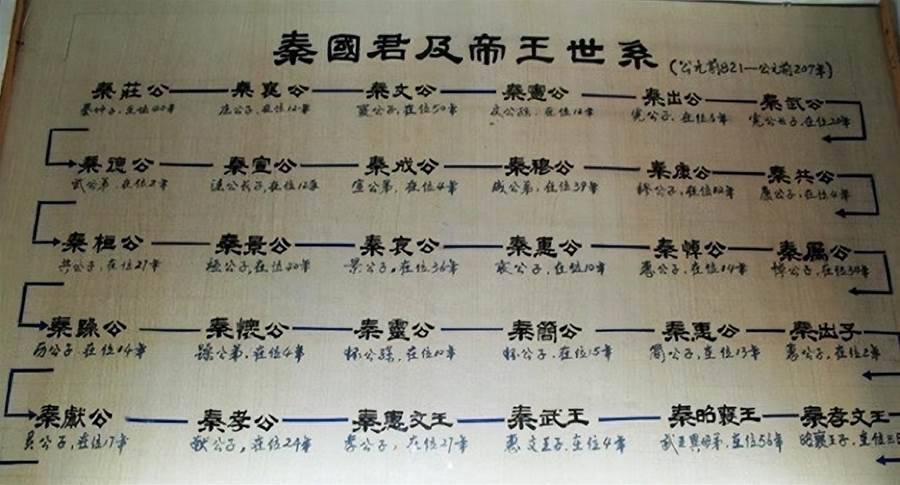 秦國君及帝王世系(公元前821—公元前207年)
秦莊公 秦襄公 秦文公 秦憲公 秦出公 秦武公
秦仲子,在位44年 庄公子,在位12年 襄公子,在位50年 文公孫,在位12年 憲公子,在位6年 憲公長子,在位20年
秦德公 秦宣公 秦成公 秦穆公 秦康公 秦共公
武公弟,在位2年 德公長子,在位12年 宣公弟,在位4年 成公弟,在位39年 穆公子,在位12年 康公子,在位4年
秦桓公 秦景公 秦哀公 秦惠公 秦悼公 秦厲公
共公子,在位27年 桓公子,在位40年 景公子,在位36年 哀公子,在位10年 惠公子,在位14年 悼公子,在位34年
秦躁公 秦懷公 秦靈公 秦簡公 秦惠公 秦出子
厉公子,在位14年 躁公弟,在位4年 怀公孫,在位10年 怀公子,在位15年 簡公子,在位13年 惠公子,在位2年
秦獻公 秦孝公 秦惠文王 秦武王 秦昭襄王 秦孝文王
灵公子,在位17年 献公子,在位24年 孝公子,在位27年 惠文王子,在位4年 武王異母弟,在位56年 昭襄王子,在位三日